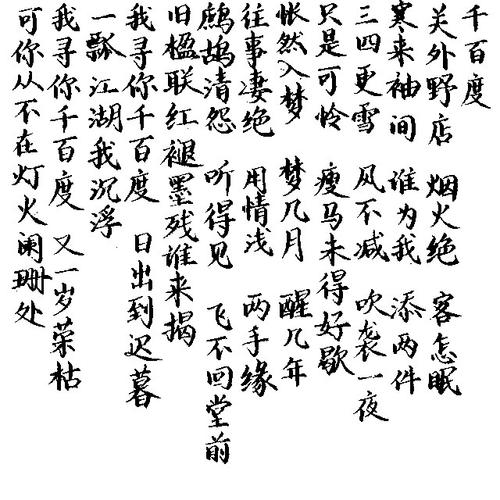 千百度
关外野店 烟火绝 客怎眠
寒来袖间 谁为我 添两件
三四更雪 风不减 吹袭一夜
只是可怜 瘦马未得好歇
怅然入梦 梦几月 醒几年
往事凄绝 用情浅 两手缘
鹧鸪清怨 听得见 飞不回堂前
旧楹联红褪墨残谁来揭
我寻你千百度 日出到迟暮
一瓢江湖我沉浮
我寻你千百度 又一岁荣枯
可你从不在灯火阑珊处